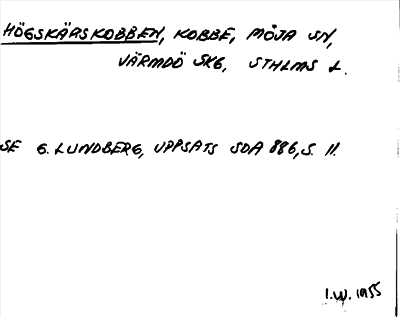 HÖGSKÄRSKOBBEN, KOBBE, MÖJA SN,
VÄRMDÖ SKG, STHLMS L.
SE G. LUNDBERG, UPPSATS SDA 886, S. 11.
I.W. 1955